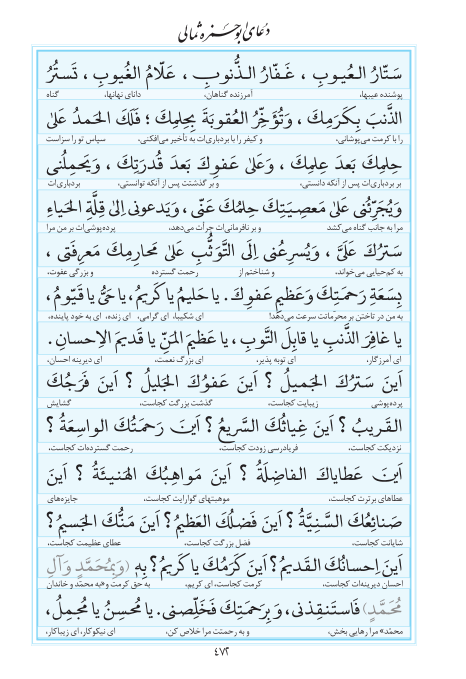 دعای ابوحمزه ثمالی
سَتّارُ العُيوبِ ، غَفّارُ الذُّنوبِ ، عَلّامُ الغُيوبِ ، تَستُرُ
پوشنده عیبها، آمرزنده گناهان، دانای نهانها، گناه
الذَّنبَ بِكَرَمِكَ ، وَتُؤَخِّرُ العُقوبَةَ بِحِلمِكَ ؛ فَلَكَ الحَمدُ عَلىٰ
را با کرمت می‌پوشانی، و کیفر را با بردباری‌ات به تأخیر می‌افکنی، سپاس تو را سزاست
حِلمِكَ بَعدَ عِلمِكَ ، وَعَلىٰ عَفوِكَ بَعدَ قُدرَتِكَ ، وَيَحمِلُني
بر بردباری‌ات پس از آنکه دانستی، و بر گذشتت پس از آنکه توانستی، بردباری‌ات
وَيُجَرِّئُني عَلىٰ مَعصِيَتِكَ حِلمُكَ عَنّي ، وَيَدعوني إلىٰ قِلَّةِ الحَياءِ
مرا به جانب گناه می‌کشد و بر نافرمانی‌ات جرأت می‌دهد، پرده‌پوشی‌ات بر من مرا
سَترُكَ عَلَيَّ ، وَيُسرِعُني إلَى التَّوَثُّبِ عَلىٰ مَحارِمِكَ مَعرِفَتي ،
به کم‌حیایی می‌خواند، و شناختم از رحمت گسترده و بزرگی عفوت،
بِسَعَةِ رَحمَتِكَ وَعَظيمِ عَفوِكَ . يا حَليمُ يا كَريمُ ، يا حَيُّ يا قَيّومُ ،
به من در تاختن بر محرماتت سرعت می‌دهد! ای شکیبا، ای گرامی، ای زنده، ای به خود پاینده،
يا غافِرَ الذَّنبِ يا قابِلَ التَّوبِ ، يا عَظيمَ المَنِّ يا قَديمَ الإحسانِ .
ای آمرزگار، ای توبه پذیر، ای بزرگ نعمت، ای دیرینه احسان،
أينَ سَترُكَ الجَميلُ ؟ أينَ عَفوُكَ الجَليلُ ؟ أينَ فَرَجُكَ
پرده‌پوشی زیبایت کجاست، گذشت بزرگت کجاست، گشایش
القَريبُ ؟ أينَ غِياثُكَ السَّريعُ ؟ أينَ رَحمَتُكَ الواسِعَةُ ؟
نزدیکت کجاست، فریادرسی زودت کجاست، رحمت گسترده‌ات کجاست،
أينَ عَطاياكَ الفاضِلَةُ ؟ أينَ مَواهِبُكَ الهَنيئَةُ ؟ أينَ
عطاهای برترت کجاست، موهبتهای گوارایت کجاست، جایزه‌های
صَنائِعُكَ السَّنِيَّةُ ؟ أينَ فَضلُكَ العَظيمُ؟ أينَ مَنُّكَ الجَسيمُ؟
شایانت کجاست، فضل بزرگت کجاست، عطای عظیمت کجاست،
أينَ إحسانُكَ القَديمُ؟ أينَ كَرَمُكَ يا كَريمُ؟ بِهِ (وَبِمُحَمَّدٍ وَآلِ
احسان دیرینه‌ات کجاست، کرمت کجاست، ای کریم، به حق کرمت و «به محمّد و خاندان
مُحَمَّدٍ) فَاستَنقِذني ، وَبِرَحمَتِكَ فَخَلِّصني . يا مُحسِنُ يا مُجمِلُ ،
محمّد» مرا رهایی بخش، و به رحمتت مرا خلاص کن، ای نیکوکار، ای زیباکار،
۴۷۲